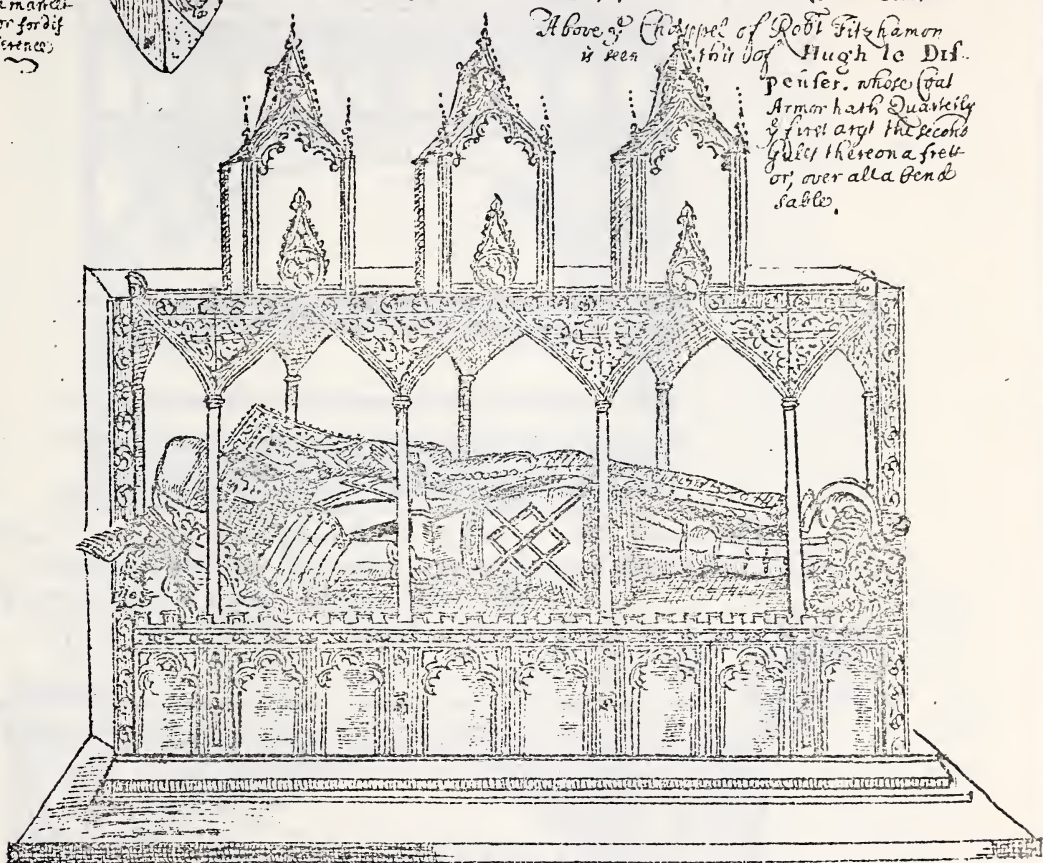 or for dif
ference
Above yͤ Chappel of Robt Fitzhamon
is seen this of Hugh le Dis-
penser. whose Coat
Armor hath Quarterly
yͤ first argt the second
Gules thereon a frett
or, over all a bend
sable.